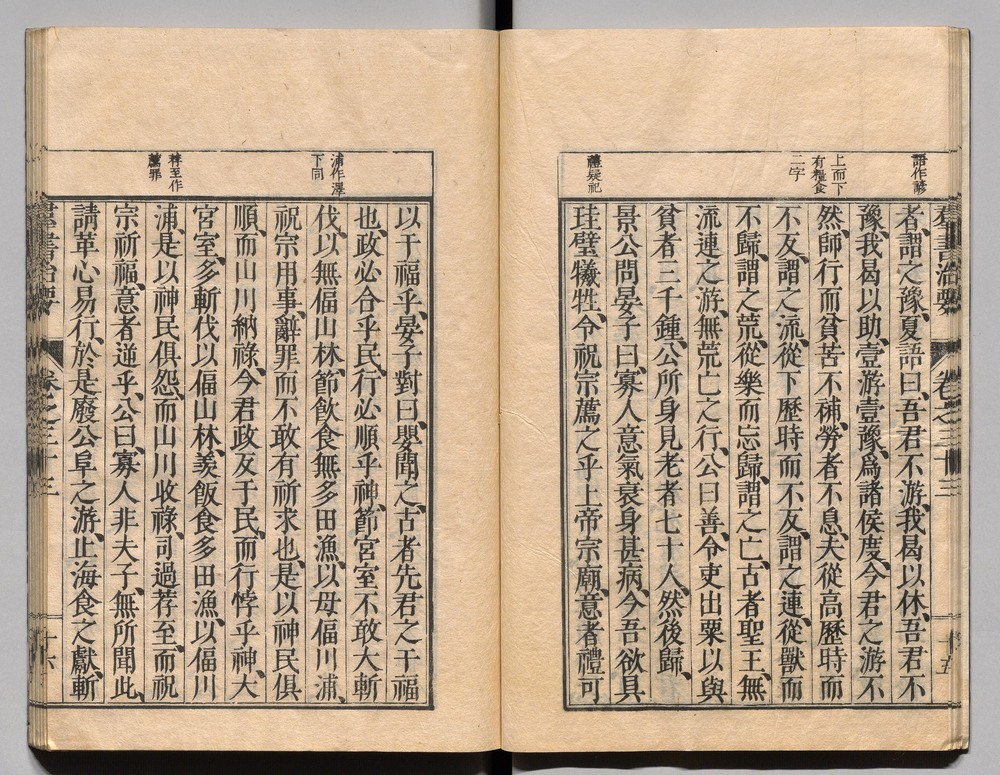 語作諺
上而下
有糧食
二字
禮疑祀
群書治要 卷之三十三 十五
者、謂之豫、夏語曰、吾君不游、我曷以休、吾君不
豫、我曷以助、壹游壹豫、爲諸侯度、今君之游不
然、師行而貧苦不補、勞者不息、夫從高歷時而
不反、謂之流、從下歷時而不反、謂之連、從獸而
不歸、謂之荒、從樂而忘歸、謂之亡、古者聖王、無
流連之游、無荒亡之行、公曰善、令吏出粟、以與
貧者三千鍾、公所身見老者七十人、然後歸、
景公問晏子曰、寡人意氣衰、身甚病、今吾欲具
珪璧犧牲、令祝宗薦之乎上帝宗廟、意者禮可
浦作澤
下同
荐至作
薦罪
以干福乎、晏子對曰、嬰聞之、古者先君之干福
也、政必合乎民、行必順乎神、節宮室、不敢大斬
伐、以無偪山林、節飲食、無多田漁、以毋偪川浦、
祝宗用事、辭罪而不敢有祈求也、是以神民俱
順、而山川納祿、今君政反于民、而行悖乎神、大
宮室、多斬伐、以偪山林、羨飯食多田漁、以偪川
浦、是以神民俱怨、而山川收祿、司過荐至、而祝
宗祈福、意者逆乎、公曰、寡人非夫子、無所聞此、
請革心易行、於是廢公阜之游、止海食之獻、斬
群書治要 卷之三十三 十六